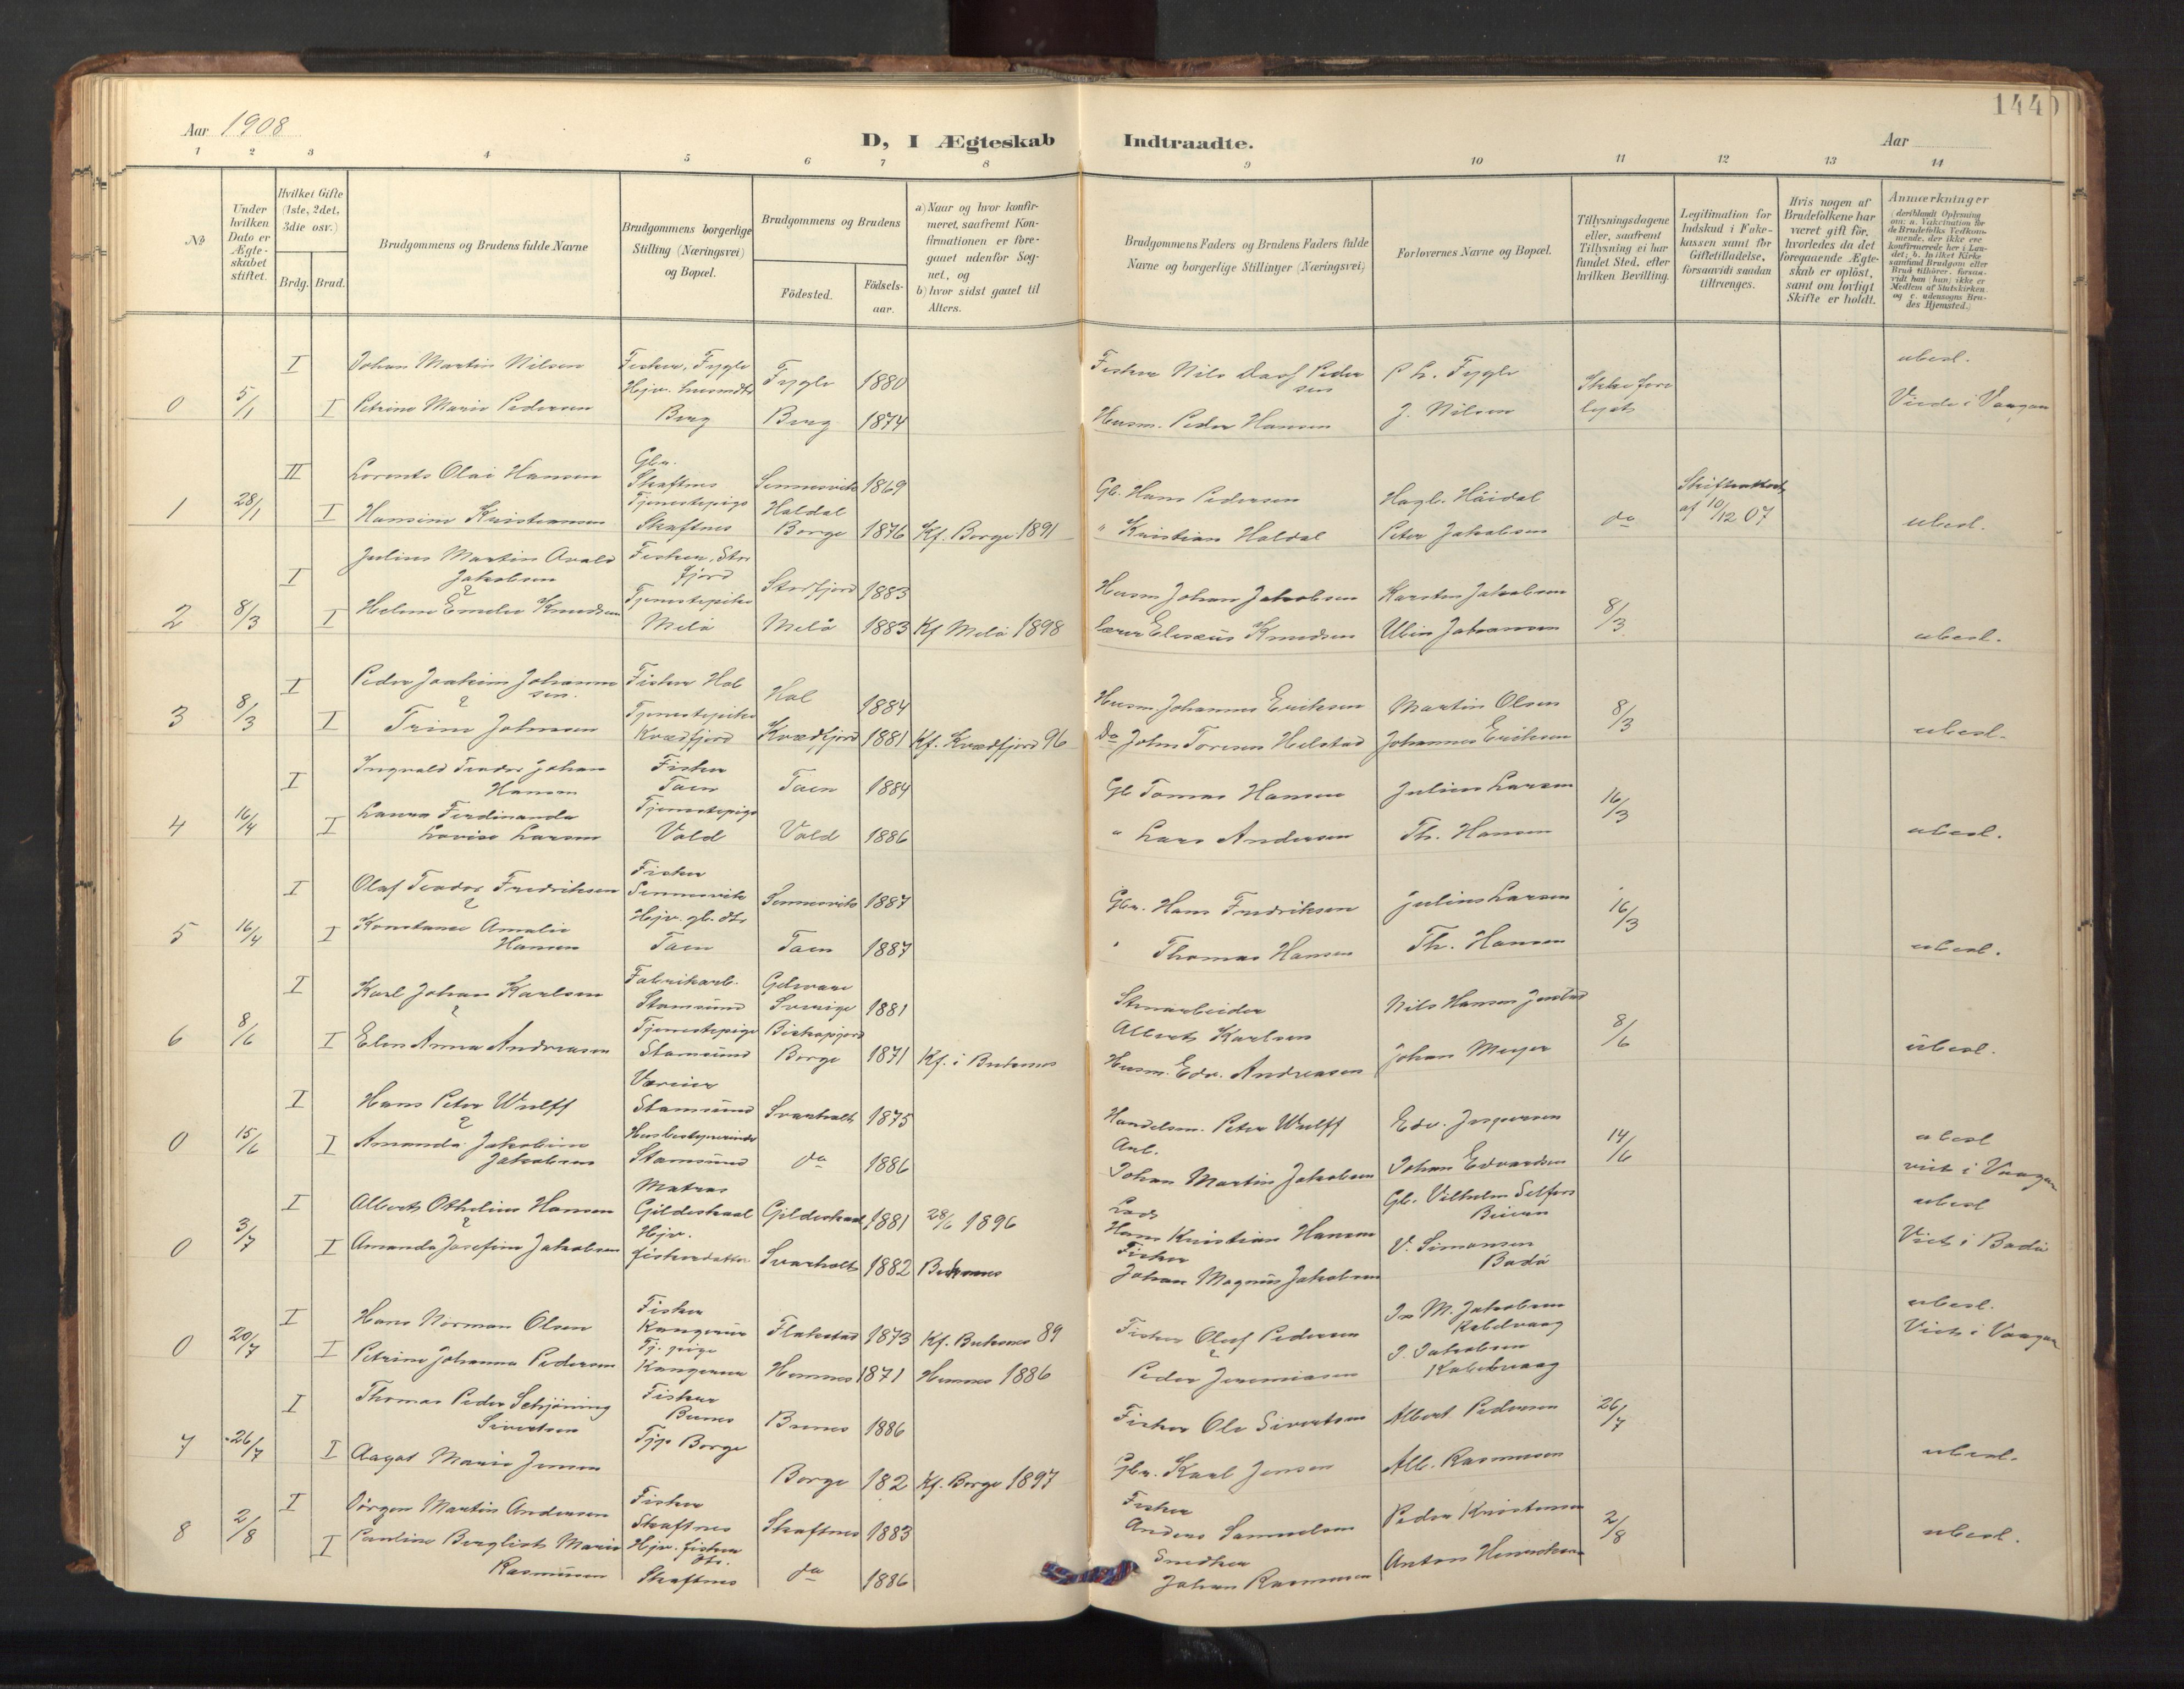 144
Aar 1908
D, I Ægteskab Indtraadte.
Aar
1 2 3 4 5 6 7 8 9 10 11 12 13 14
No
Under hvilken Dato er Ægteskabet stiftet.
Hvilket Gifte (1ste, 2det, 3die osv.)
Brdg. Brud.
Brudgommens og Brudens fulde Navne
Brudgommens borgerlige Stilling (Næringsvei) og Bopæl.
Brudgommens og Brudens
Födested.
Födsels-aar.
a) Naar og hvor konfirmeret, saafremt Konfirmationen er foregaaet udenfor Sognet, og
b) hvor sidst gaaet til Alters.
Brudgommens Faders og Brudens Faders fulde Navne og borgerlige Stillinger (Næringsvei)
Forlovernes Navne og Bopæl.
Tillysningsdagene eller, saafremt Tillysning ei har fundet Sted, efter hvilken Bevilling.
Legitimation for Indskud i Fokekassen samt for Giftetilladelse, forsaavidt saadan tiltrænges.
Hvis nogen af Brudefolkene har været gift før, hvorledes da det foregaaende Ægteskab er oplöst, samt om lovligt Skifte er holdt.
Anmærkninger
(deriblandt Oplysning om: a. Vakcination for de Brudefolks Vedkommende, der ikke ere konfirmerede her i Landet; b. hvilket Kirkesamfund Brudgom eller Brud tilhører, forsaavidt han (hun) ikke er Medlem af Statskirken og c. udensogns Brudes Hjemsted.)
0 5/1 I Johan Martin Nilsen Fisker, Fygle Fygle 1880 Fisker Nils Pedersen P. L. Fygle Ikke forelyst ubesl.
I Petrine Marie Pedersen Hjv. husmdtr Berg Berg 1874 Husm. Peder Hansen J. Nilsen Viede i Vaagan
1 28/1 II Lorents Olai Hansen Gbr. Skaftnes Sennesvik 1869 Gb. Hans Pedersen Hagb. Håidal Skifteattest af 10/12 07
I Hansine Kristiansen Tjenestepige Skaftnes Haldal Borge 1876 Kf. Borge 1891 " Kristian Haldal Peter Jakobsen do ubesl.
2 8/3 I Julius Martin Jakobsen Fisker, Storfjord Storfjord 1883 Husm Johan Jakobsen Karsten Jakobsen 8/3
& I Helene Emelie Knudsen Tjenestepike Melö Melö 1883 Kf Melö 1898 lærer Elisæus Knudsen Johansen ubesl.
3 8/3 I Peder Joakim Johannesen Fisker Hol Hol 1884 Husm. Johannes Eriksen Martin Olsen 8/3
& I Trine Johnsen Tjenestepike Kvædfjord Kvædfjord 1881 Kf. Kvædfjord 96 Do John Toresen Helstad Johannes Eriksen ubesl.
4 16/4 I Ingvald Teodor Johan Hansen Fisker Taen Taen 1884 Gb Tomas Hansen Julius Larsen 16/3
I Laura Ferdinanda Lovise Larsen Tjenestepige Vold Vold 1886 " Lars Andersen Th. Hansen ubesl.
5 16/4 I Olaf Teodor Fredriksen Fisker Sennesvik Sennesvik 1887 Gbr. Hans Fredriksen Julius Larsen 16/3
& I Konstance Amalie Hansen Hjv. gb. dtr Taen Taen 1887 " Thomas Hansen Th. Hansen ubesl.
6 8/6 I Karl Johan Karlsen Fabrikarb. Stamsund Sverige 1881 Stenarbeider Albert Karlsen Nils Hansen 8/6
& I Elen Anna Andreasen Tjenestepige Stamsund Borge 1871 Kf. i Buksnes Husm. Edv. Andreasen Johan Meyer ubesl.
0 15/6 I Hans Peter Wulff Stamsund Svarholt 1875 Handelsm. Peter Wulff Edv. Jespersen 14/6 ubesl
& I Amanda Jakobine Jakobsen Husbestyrerinde Stamsund do 1886 Arb. Johan Martin Jakobsen Johan Edvardsen viet i Vaagan
0 3/7 I Albert Othelius Hansen Matros Gildeskaal Gildeskaal 1881 28/6 1896 Lods Hans Kristian Hansen Gb. Vilhelm Selfors ubesl
& I Amanda Josefine Jakobsen Hjv. fiskerdatter Svarholt 1882 Buksnes Fisker Johan Magnus Jakobsen V. Simonsen Bodö Viet i Bodö
0 20/7 I Hans Norman Olsen Fisker Kangerur Flakstad 1873 Kf. Buksnes 89 Fisker Olaf Pedersen M. Jakobsen Kabelvaag ubesl.
I Petrine Johanna Pedersen Tj. pige Kangerur Hemnes 1871 Hemnes 1886 & Peder Jeremiasen J. Jakobsen Kabelvaag Viet i Vaagan
7 26/7 I Thomas Peder Schjöning Sivertsen Fisker Brenes 1886 Fisker Ole Sivertsen Albert Pedersen 26/7
I Aagot Marie Jensen Tjp Borge Borge 182 Kf. Borge 1897 Gbr. Karl Jensen Alb. Rasmussen ubesl.
8 2/8 I Jörgen Martin Andersen Fisker Skaftnes Skaftnes 1883 Fisker Anders Samuelsen Peder Kristensen 2/8
I Pauline Berglioth Marie Rasmussen Hjv. fisker dtr. Skaftnes do 1886 Snedker Johan Rasmussen Anton Henriksen ubesl.